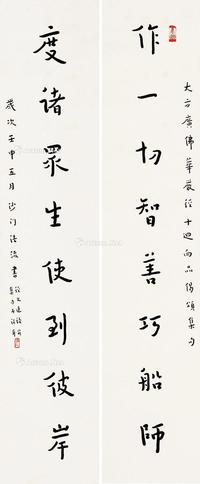 大方广佛華嚴經十迴向品偈頌集句
作一切智善巧船師
度諸眾生使到彼岸
歲次壬申五月沙门
書